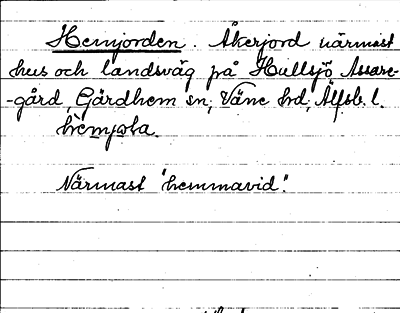 Hemjorden. Åkerjord närmast
hus och landsväg på Hullsjö Assare-
-gård, Gärdhem sn, Väne hd, Älfsb. l.
Närmast "hemmavid".